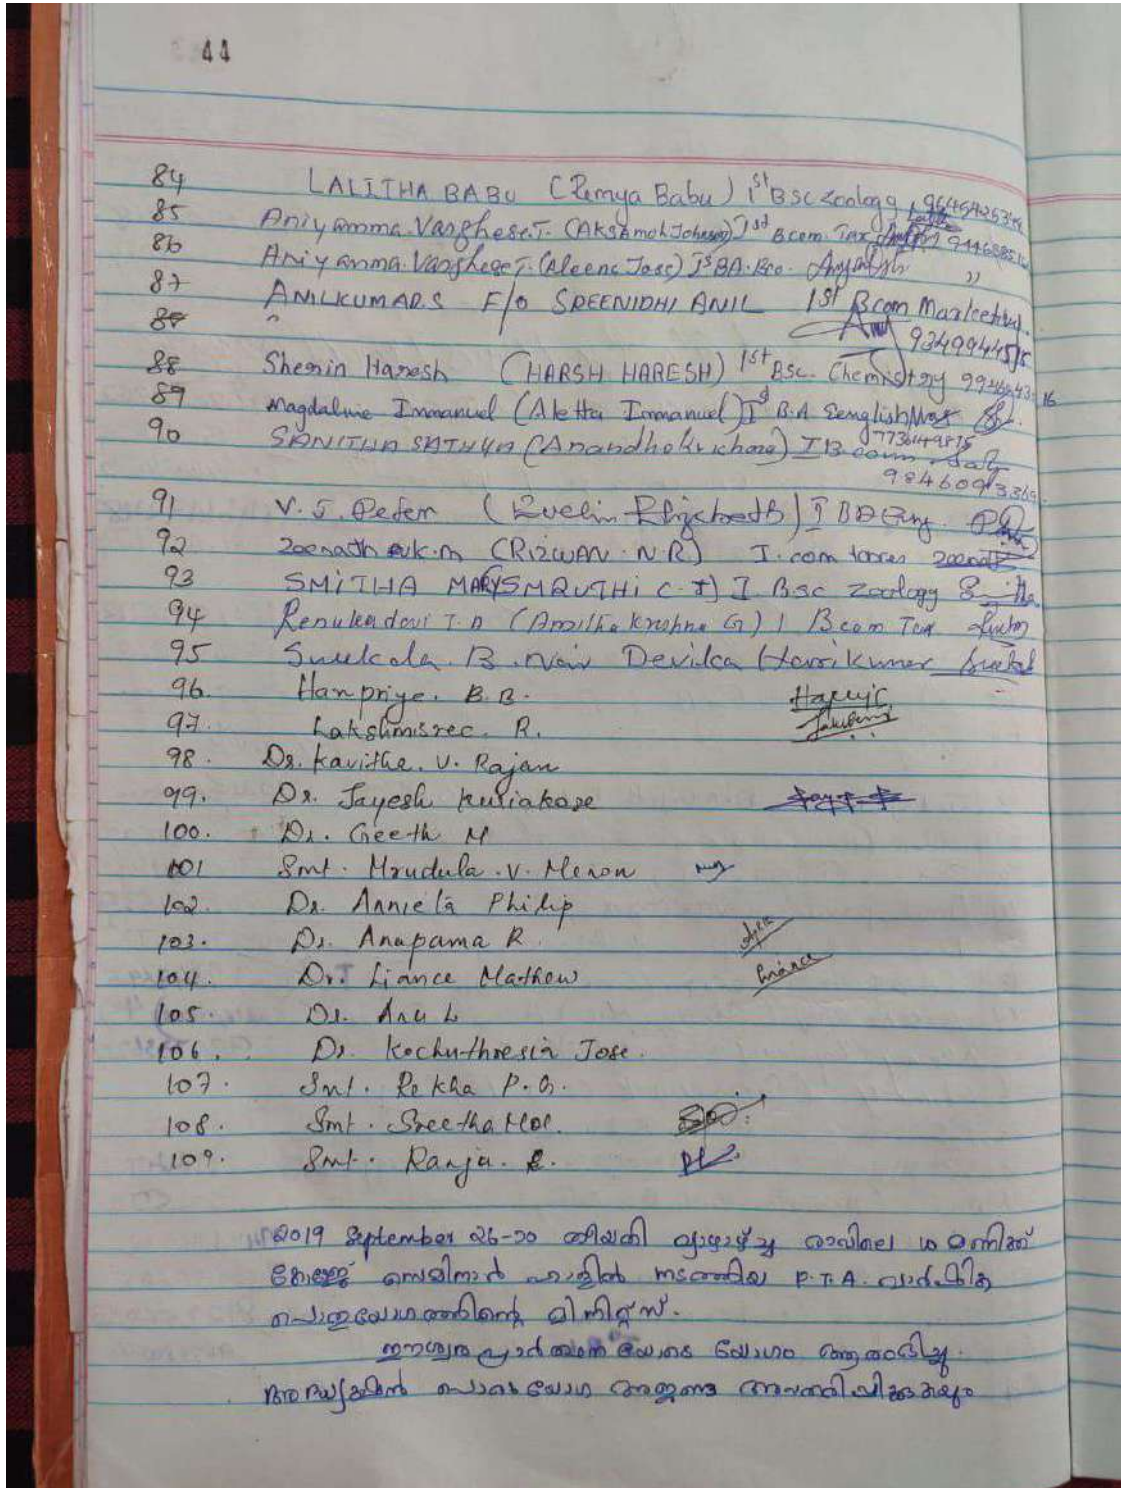 44
84 LALITHA BABU (Remya Babu) 1st BSc Zoology
85 Aniyamma Varghese T. (Aksamol Johnson) 1st Bcom. Tax
86 Aniyamma Varghese T. (Aleena Jose) Ist BA. Eco. "
87 ANILKUMAR.S F/o SREENIDHI ANIL 1st Bcom Marketing.
9349944515
88 Sherin Haresh (HARSH HARESH) 1st BSc. Chemistry
89 Magdaline Immanuel (Aletta Immanuel) I B.A English
7736149875
90 SANITHA SATHYA (Anandhakrishna) I B com
91 V.J. Peter (Evelin Elizabeth) I BA Eng.
92 Zeenath K.M (RIZWAN N.R) I. com
93 SMITHA MARY (SMRUTHI C.J) I Bsc Zoology Smitha
94 Renukadevi T.D (Amritha Krishna G) I Bcom Tax
95 Sreekala B. Nair Devika Harikumar
96. Haripriya. B.B.
97. Lakshmisree. R.
98. Dr. Kavitha. V. Rajan
99. Dr. Jayesh Kuriakose
100. Dr. Geeth M
101 Smt. Mrudula. V. Menon
102. Dr. Anniela Philip
103. Dr. Anupama R.
104. Dr. Liance Mathew
105. Dr. Anu L
106. Dr. Kochuthresia Jose.
107. Smt. Rekha P.G.
108. Smt. Sreetha Mol.
109. Smt. Ranja.
2019 September 26-ാം തീയതി വ്യാഴാഴ്ച്ച രാവിലെ മണിക്ക്
കോളേജ് സെമിനാർ ഹാളിൽ നടത്തിയ P.T.A. വാർഷിക
പൊതുയോഗത്തിന്റെ മിനിറ്റ്സ്.
ഈശ്വരപ്രാർത്ഥനയോടെ യോഗം ആരംഭിച്ചു.
അദ്ധ്യക്ഷൻ പൊതുയോഗ അജണ്ട അവതരിപ്പിക്കുകയും